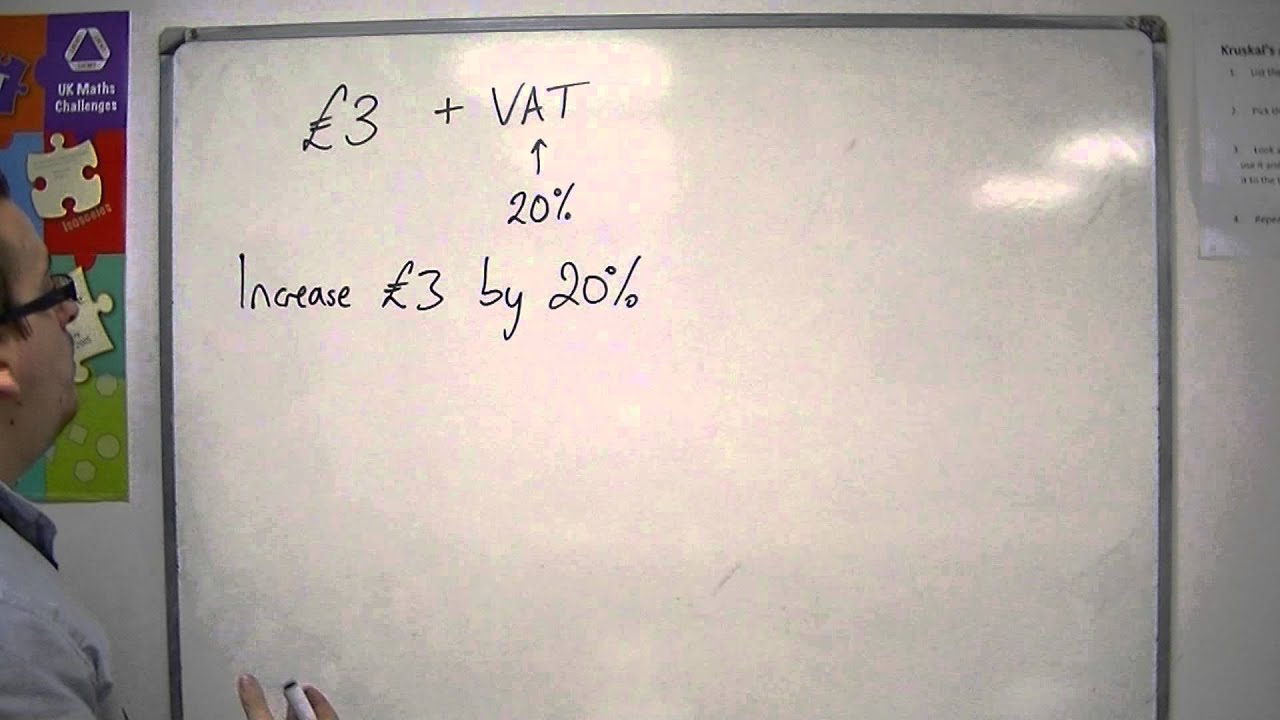 UK Maths
Challenges
isosceles
£3 + VAT
↑
20%
Increase £3 by 20%
Kruskal's
1. List the
2. Pick
3. Look
use it
it to the
4. Repe